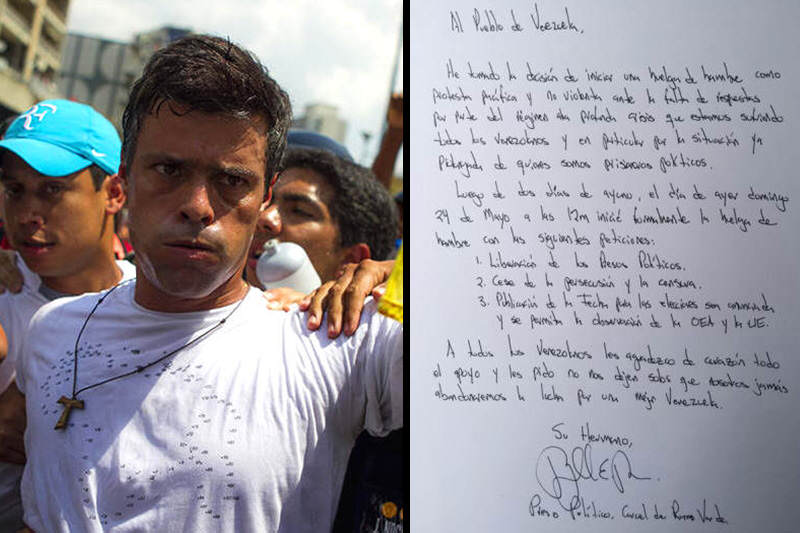 Al Pueblo de Vezuela,
He tomado la decisión de iniciar una huelga de hambre como
protesta pacífica y no violenta ante la falta de respuestas
por parte del régimen a la profunda crisis que estamos sufriendo
todos los venezolanos y en particular por la situación ya
prolongada de quienes somos prisioneros políticos.
Luego de dos días de ayuno, el día de ayer domingo
24 de Mayo a las 12m inicié formalmente la huelga de
hambre con las siguientes peticiones:
1. Liberación de los Presos Políticos.
2. Cese de la persecusión y la censura.
3. Publicación de la Fecha para las elecciones sea anunciada
y se permita la observación de la OEA y la UE.
A todos los venezolanos les agradezco de corazón todo
el apoyo y les pido no nos dejen solos que nosotros jamás
abandonaremos la lucha por una mejor Venezuela.
Su Hermano,
Preso Político, Carcel de Ramo Verde